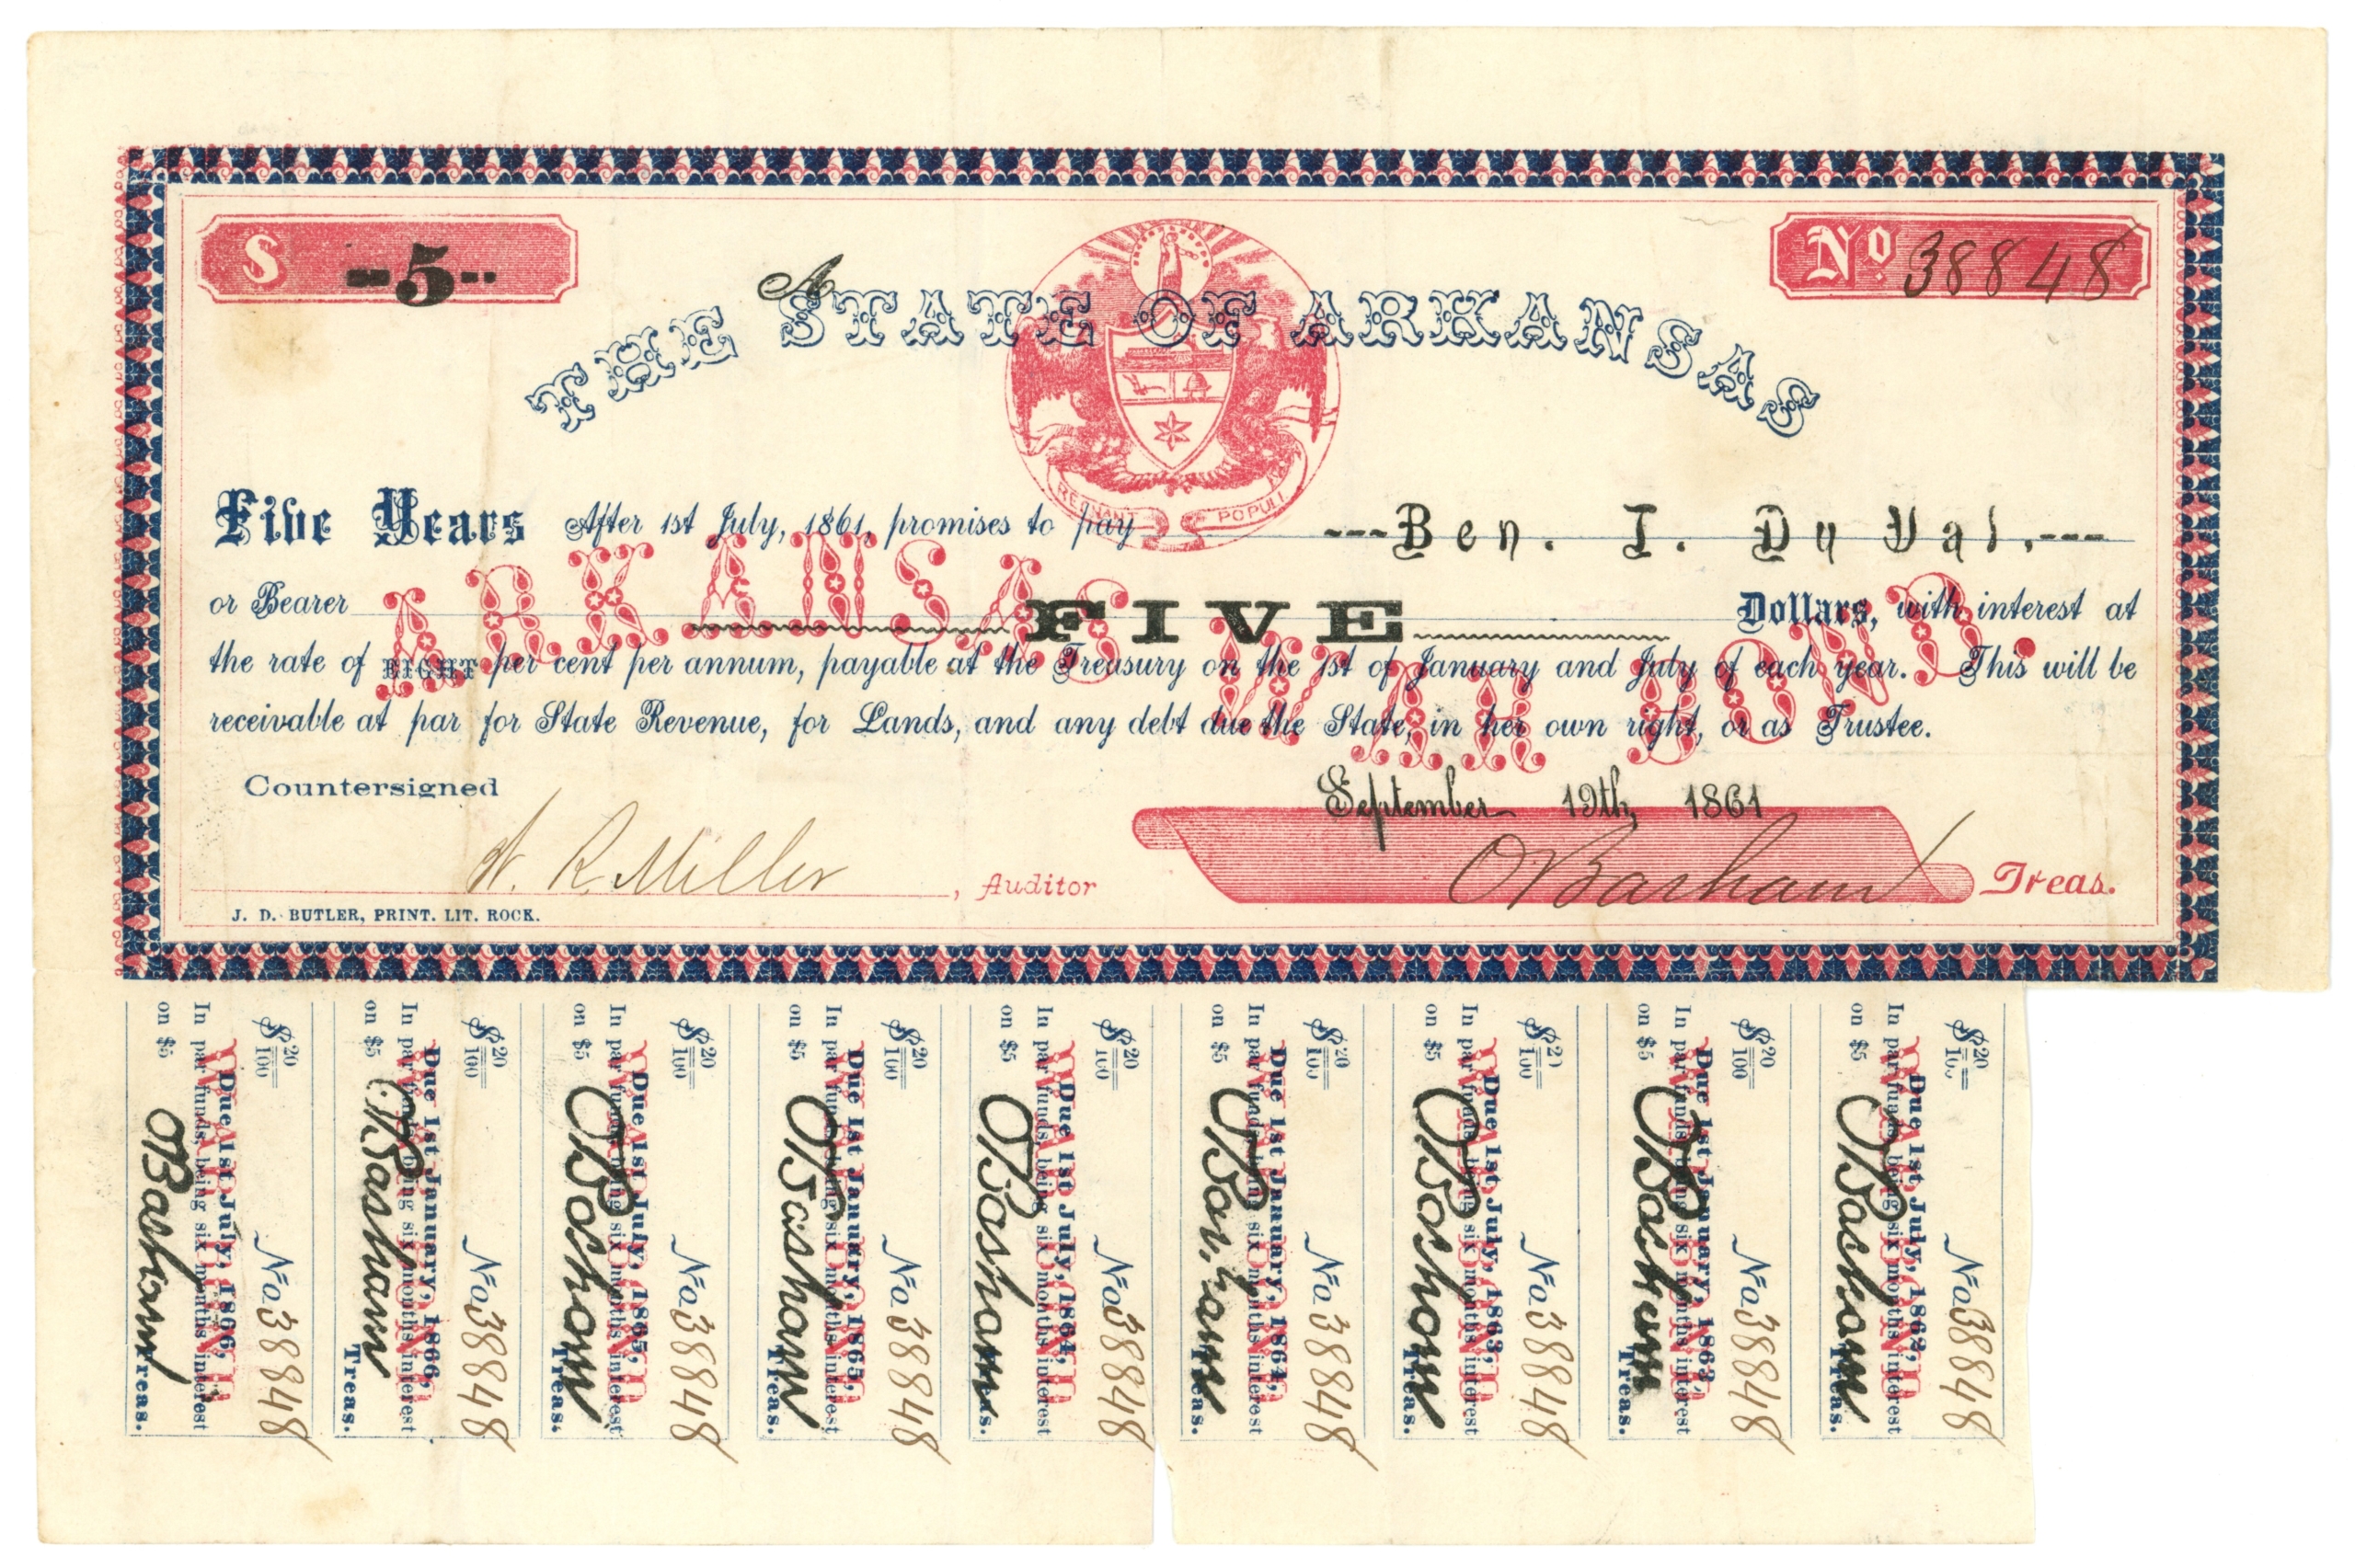 $ -5--
No 38848
A
THE STATE OF ARKANSAS
REGNANT POPULI
Five Years After 1st July, 1861, promises to pay ---Ben. T. Du Val.---
or Bearer FIVE Dollars, with interest at
the rate of EIGHT per cent per annum, payable at the Treasury on the 1st of January and July of each year. This will be
receivable at par for State Revenue, for Lands, and any debt due the State, in her own right, or as Trustee.
ARKANSAS WAR BOND.
Countersigned
September 19th, 1861
W. R. Miller, Auditor
O Basham Treas.
J. D. BUTLER, PRINT. LIT. ROCK.
$20/100 No 38848
WAR BOND
Due 1st July, 1866,
In par funds, being six months interest
on $5 O Basham Treas.
$20/100 No 38848
WAR BOND
Due 1st January, 1866,
In par funds, being six months interest
on $5 O Basham Treas.
$20/100 No 38848
WAR BOND
Due 1st July, 1865,
In par funds, being six months interest
on $5 O Basham Treas.
$20/100 No 38848
WAR BOND
Due 1st January, 1865,
In par funds, being six months interest
on $5 O Basham Treas.
$20/100 No 38848
WAR BOND
Due 1st July, 1864,
In par funds, being six months interest
on $5 O Basham Treas.
$20/100 No 38848
WAR BOND
Due 1st January, 1864,
In par funds, being six months interest
on $5 O Basham Treas.
$20/100 No 38848
WAR BOND
Due 1st July, 1863,
In par funds, being six months interest
on $5 O Basham Treas.
$20/100 No 38848
WAR BOND
Due 1st January, 1863,
In par funds, being six months interest
on $5 O Basham Treas.
$20/100 No 38848
WAR BOND
Due 1st July, 1862,
In par funds, being six months interest
on $5 O Basham Treas.